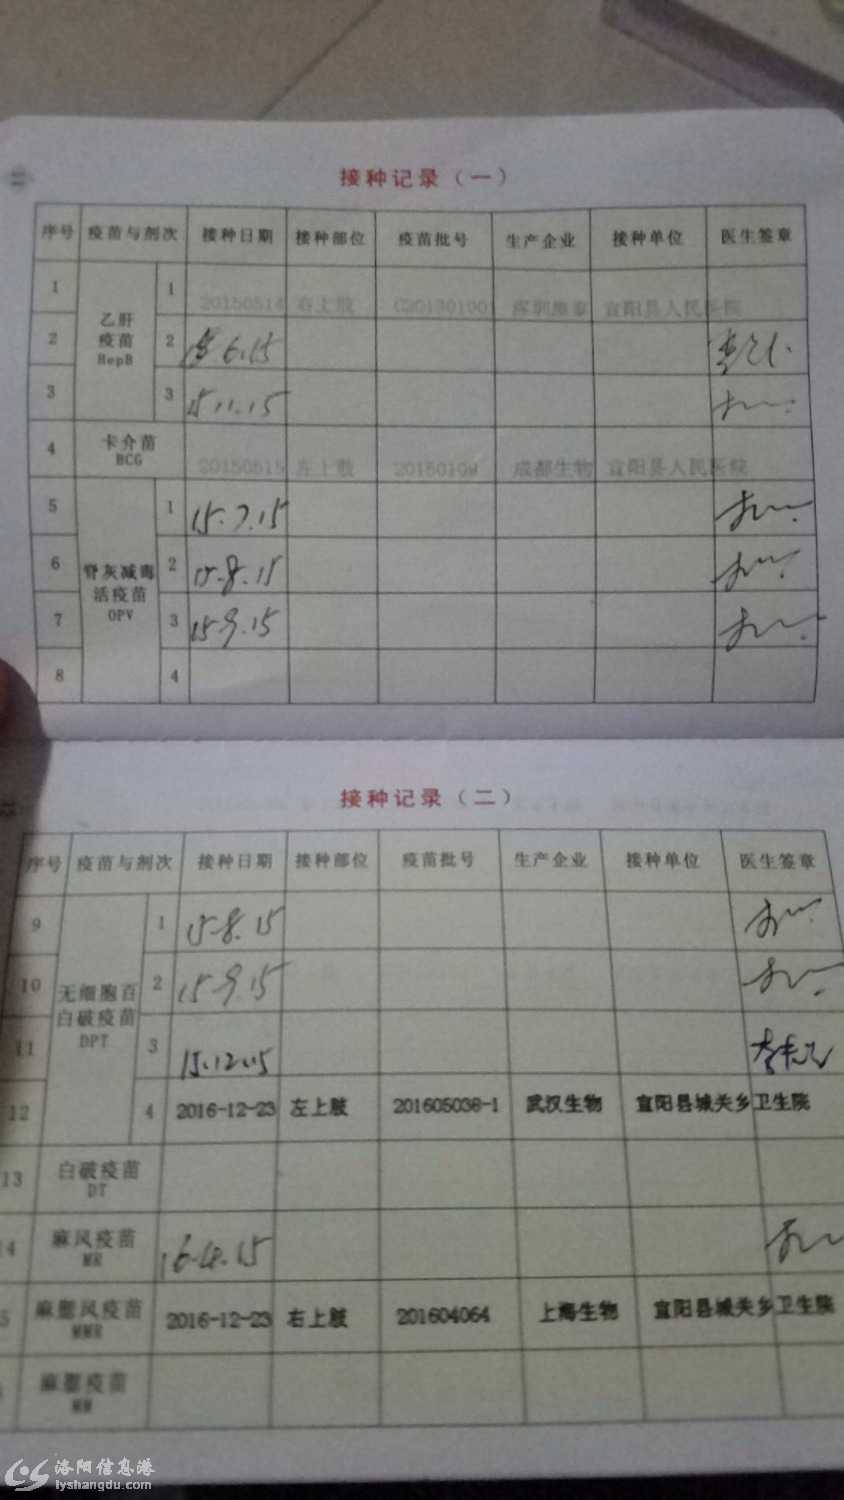 接种记录（一）
序号 疫苗与剂次 接种日期 接种部位 疫苗批号 生产企业 接种单位 医生签章
1 乙肝疫苗 HepB 1 20150514 右上肢 C20130100 深圳康泰 宜阳县人民医院
2 2 15.6.15
3 3 15.11.15
4 卡介苗 BCG 20150515 左上肢 成都生物 宜阳县人民医院
5 脊灰减毒活疫苗 OPV 1 15.7.15
6 2 15.8.15
7 3 15.9.15
8 4
接种记录（二）
序号 疫苗与剂次 接种日期 接种部位 疫苗批号 生产企业 接种单位 医生签章
9 无细胞百白破疫苗 DPT 1 15.8.15
10 2 15.9.15
11 3 15.12.15
12 4 2016-12-23 左上肢 201605036-1 武汉生物 宜阳县城关乡卫生院
13 白破疫苗 DT
14 麻风疫苗 MR 16.4.15
5 麻腮风疫苗 MMR 2016-12-23 右上肢 201604064 上海生物 宜阳县城关乡卫生院
麻腮疫苗 MM
洛阳信息港
lyshangdu.com